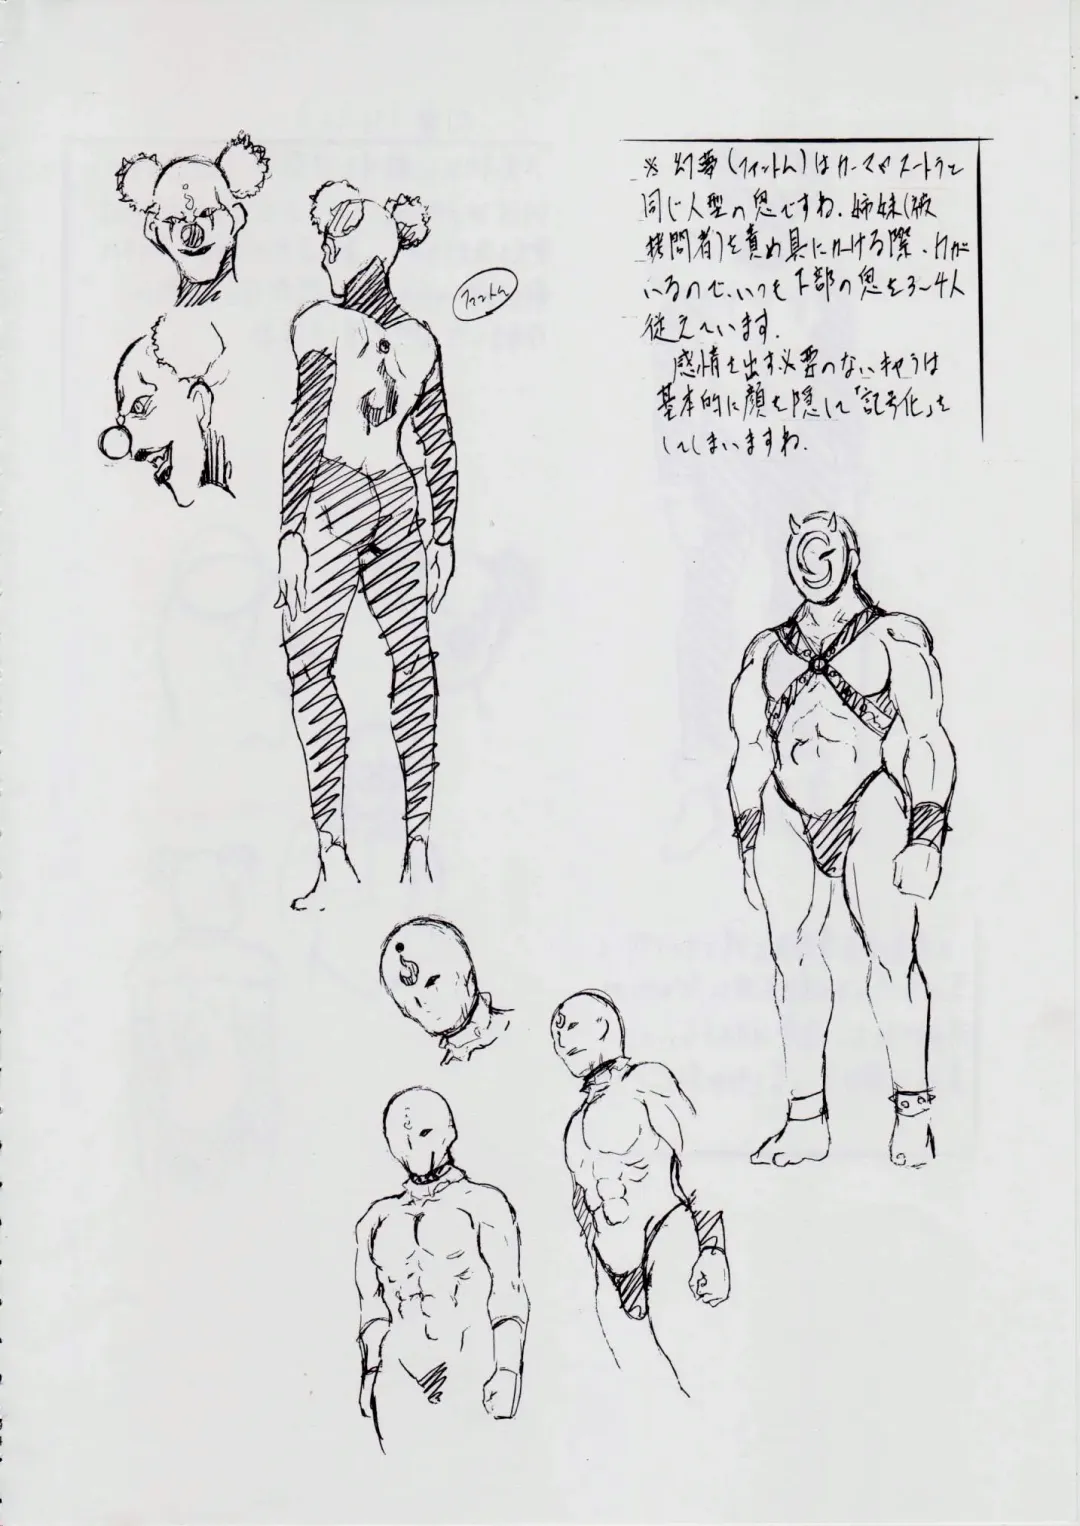 ※ 幻夢(ファントム)はカーマやスートラと
同じ人型の鬼ですね、姉妹(被
拷問者)を責め具にかける際、力が
いるので、いつも下部の鬼を3〜4人
従えています.
感情を出す必要のないキャラは
基本的に顔を隠して「記号化」を
してしまいますね.
ファントム